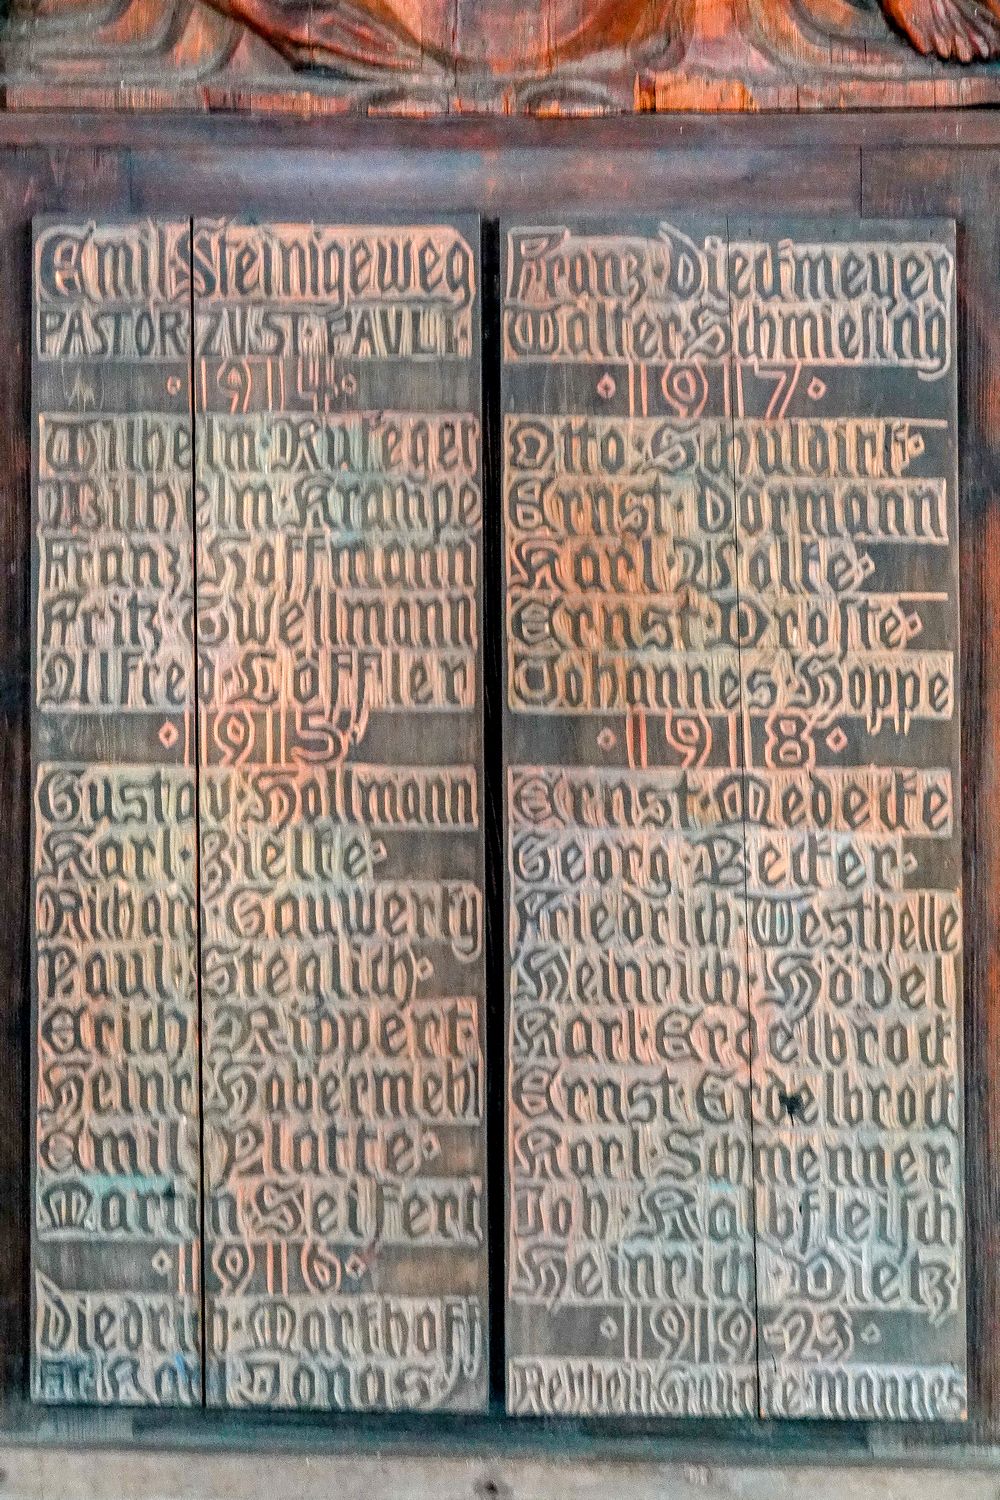 Emil Steinigeweg
PASTOR ZU ST. PAULI
·1914·
Wilhelm Krueger
Wilhelm Krampe
Franz Hoffmann
Fritz Schwellmann
Alfred Löffler
·1915·
Gustav Hollmann
Karl· Bielke·
Richard Gauwerky
Paul Steglich·
Erich Rippert·
Heinr Havermehl
Emil Platte·
Martin Seifert
·1916·
Diedrich Markhoff
Jonas
Franz·Dieckmeyer
Walter Schmieling
·1917·
Otto·Schuldink·
Ernst·Dörmann
Karl· Nolte·
Ernst·Droste·
Johannes·Hoppe
·1918·
Ernst·Medecke
Georg·Becker·
Friedrich Westhelle
Heinrich·Hövel
Karl·Erdelbrock
Ernst·Erdelbrock
Karl·Schmenner
Joh·Kalbfleisch
Heinrich·Dietz
·1919-23·